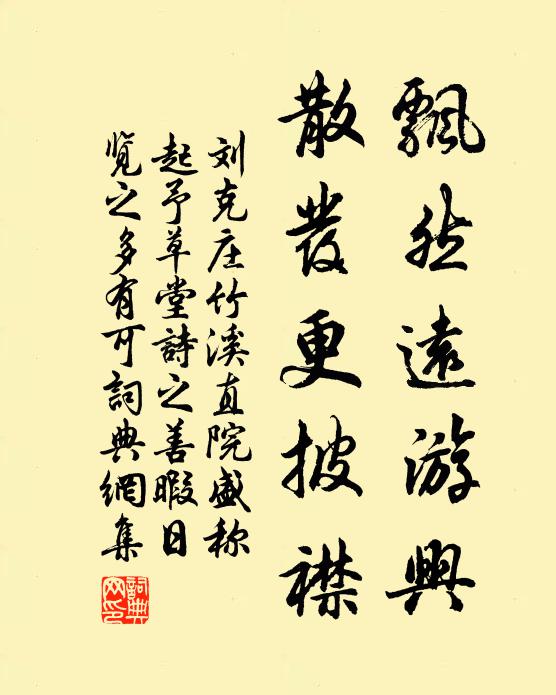 飄然遠游興
散發更披襟
刘克庄竹溪直院盛称
起予草堂詩之善暇日
覽之多有可詞典網集
詞典
网印